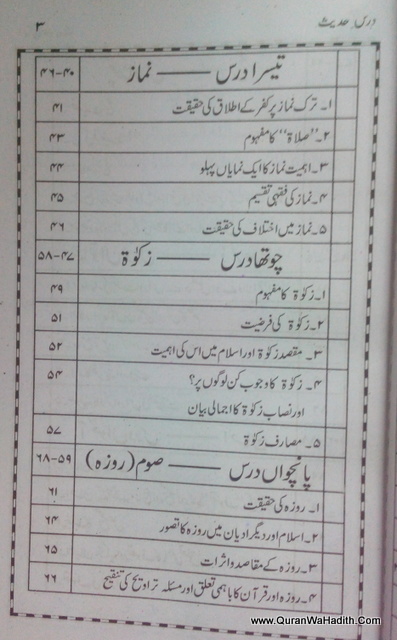 درس حدیث ۳
تیسرا درس —— نماز ۴۰-۴۶
۱۔ ترک نماز پر کفر کے اطلاق کی حقیقت ۴۱
۲۔ ”صلاۃ“ کا مفہوم ۴۳
۳۔ اہمیت نماز کا ایک نمایاں پہلو ۴۴
۴۔ نماز کی فقہی تقسیم ۴۵
۵۔ نماز میں اختلاف کی حقیقت ۴۶
چوتھا درس —— زکوٰۃ ۴۷-۵۸
۱۔ زکوٰۃ کا مفہوم ۴۹
۲۔ زکوٰۃ کی فرضیت ۵۱
۳۔ مقصد زکوٰۃ اور اسلام میں اس کی اہمیت ۵۲
۴۔ زکوٰۃ کا وجوب کن لوگوں پر؟ ۵۴
اور نصاب زکوٰۃ کا اجمالی بیان
۵۔ مصارف زکوٰۃ ۵۷
پانچواں درس —— صوم (روزہ) ۵۹-۶۸
۱۔ روزہ کی حقیقت ۶۱
۲۔ اسلام اور دیگر ادیان میں روزہ کا تصور ۶۴
۳۔ روزہ کے مقاصد و اثرات ۶۵
۴۔ روزہ اور قرآن کا باہمی تعلق اور مسئلہ تراویح کی تنقیح ۶۶
www.QuranWaHadith.Com